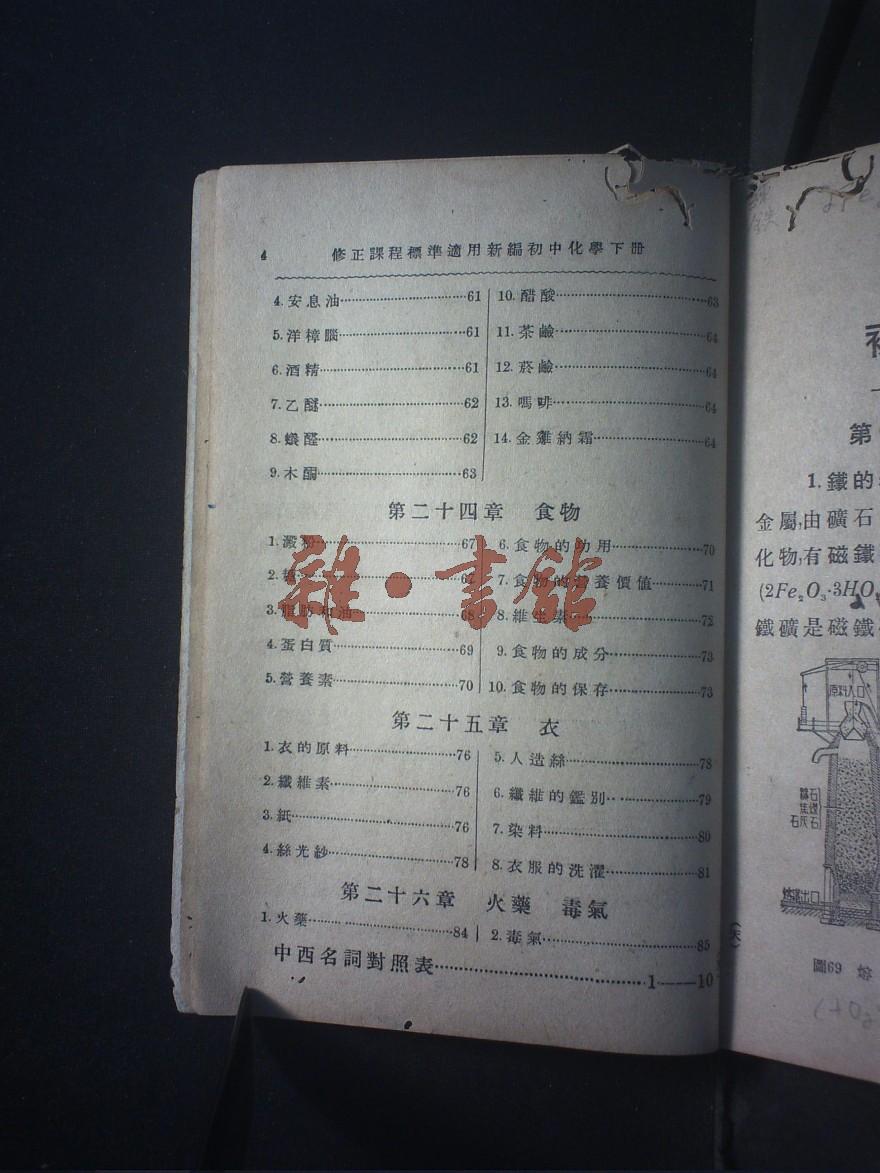 4 修正課程標準適用新編初中化學下冊
4. 安息油 61
5. 洋樟腦 61
6. 酒精 61
7. 乙醚 62
8. 蟻醛 62
9. 木酮 63
10. 醋酸 63
11. 茶鹼 64
12. 菸鹼 64
13. 嗎啡 64
14. 金雞納霜 64
第二十四章 食物
1. 澱粉 67
2. 糖 67
3. 脂肪和油 68
4. 蛋白質 69
5. 營養素 70
6. 食物的功用 70
7. 食物的營養價值 71
8. 維生素 72
9. 食物的成分 73
10. 食物的保存 73
第二十五章 衣
1. 衣的原料 76
2. 纖維素 76
3. 紙 76
4. 絲光紗 78
5. 人造絲 78
6. 纖維的鑑別 79
7. 染料 80
8. 衣服的洗濯 81
第二十六章 火藥 毒氣
1. 火藥 84
2. 毒氣 85
中西名詞對照表 1——10
雜·書館
第
1. 鐵的
金屬,由礦石
化物,有磁鐵
(2Fe₂O₃·3HO
鐵礦是磁鐵
原料入口
石灰石
圖69 熔